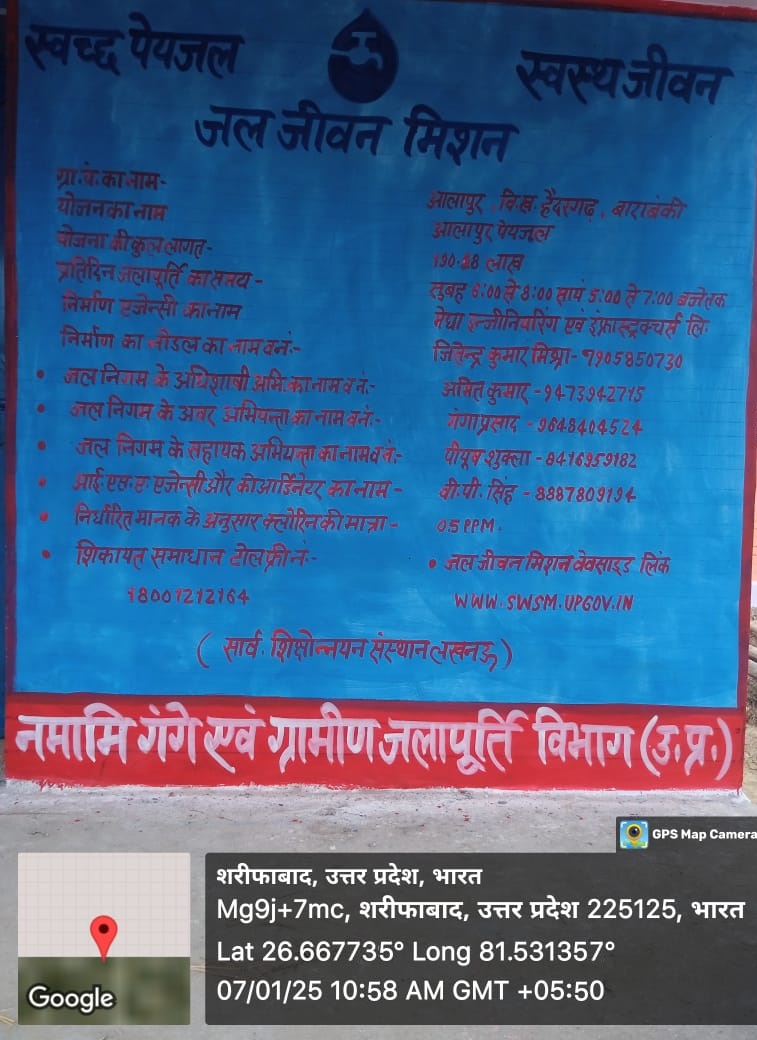 स्वच्छ पेयजल
स्वस्थ जीवन
जल जीवन मिशन
ग्रा.पं. का नाम- आलापुर, वि.ख. हैदरगढ़, बाराबंकी
योजन का नाम आलापुर पेयजल
योजना की कुल लागत- लाख
प्रतिदिन जलापूर्ति का समय - सुबह 6:00 से 8:00 सायं 5:00 से 7:00 बजे तक
निर्माण एजेन्सी का नाम मेघा इन्जीनियरिंग एवं इंफ्रास्ट्रक्चर्स लि.
निर्माण का नोडल का नाम व नं:- जितेन्द्र कुमार मिश्रा- 7905850730
• जल निगम के अधिशाषी अभि. का नाम व नं:- अमित कुमार - 9473942715
• जल निगम के अवर अभियन्ता का नाम व नं:- गंगा प्रसाद - 9648404524
• जल निगम के सहायक अभियन्ता का नाम व नं:- पीयूष शुक्ला - 8416959182
• आई.एस.ए. एजेन्सी और कोआर्डिनेटर का नाम - वी.पी. सिंह - 8887809194
• निर्धारित मानक के अनुसार क्लोरिन की मात्रा - 0.5 PPM.
• शिकायत समाधान टोल फ्री नं:- • जल जीवन मिशन वेवसाइड लिंक
18001212164 WWW.SWSM.UPGOV.IN
( सार्व. शिक्षोन्नयन संस्थान लखनऊ )
नमामि गंगे एवं ग्रामीण जलापूर्ति विभाग (उ.प्र.)
GPS Map Camera
शरीफाबाद, उत्तर प्रदेश, भारत
Mg9j+7mc, शरीफाबाद, उत्तर प्रदेश 225125, भारत
Lat 26.667735° Long 81.531357°
07/01/25 10:58 AM GMT +05:50
Google